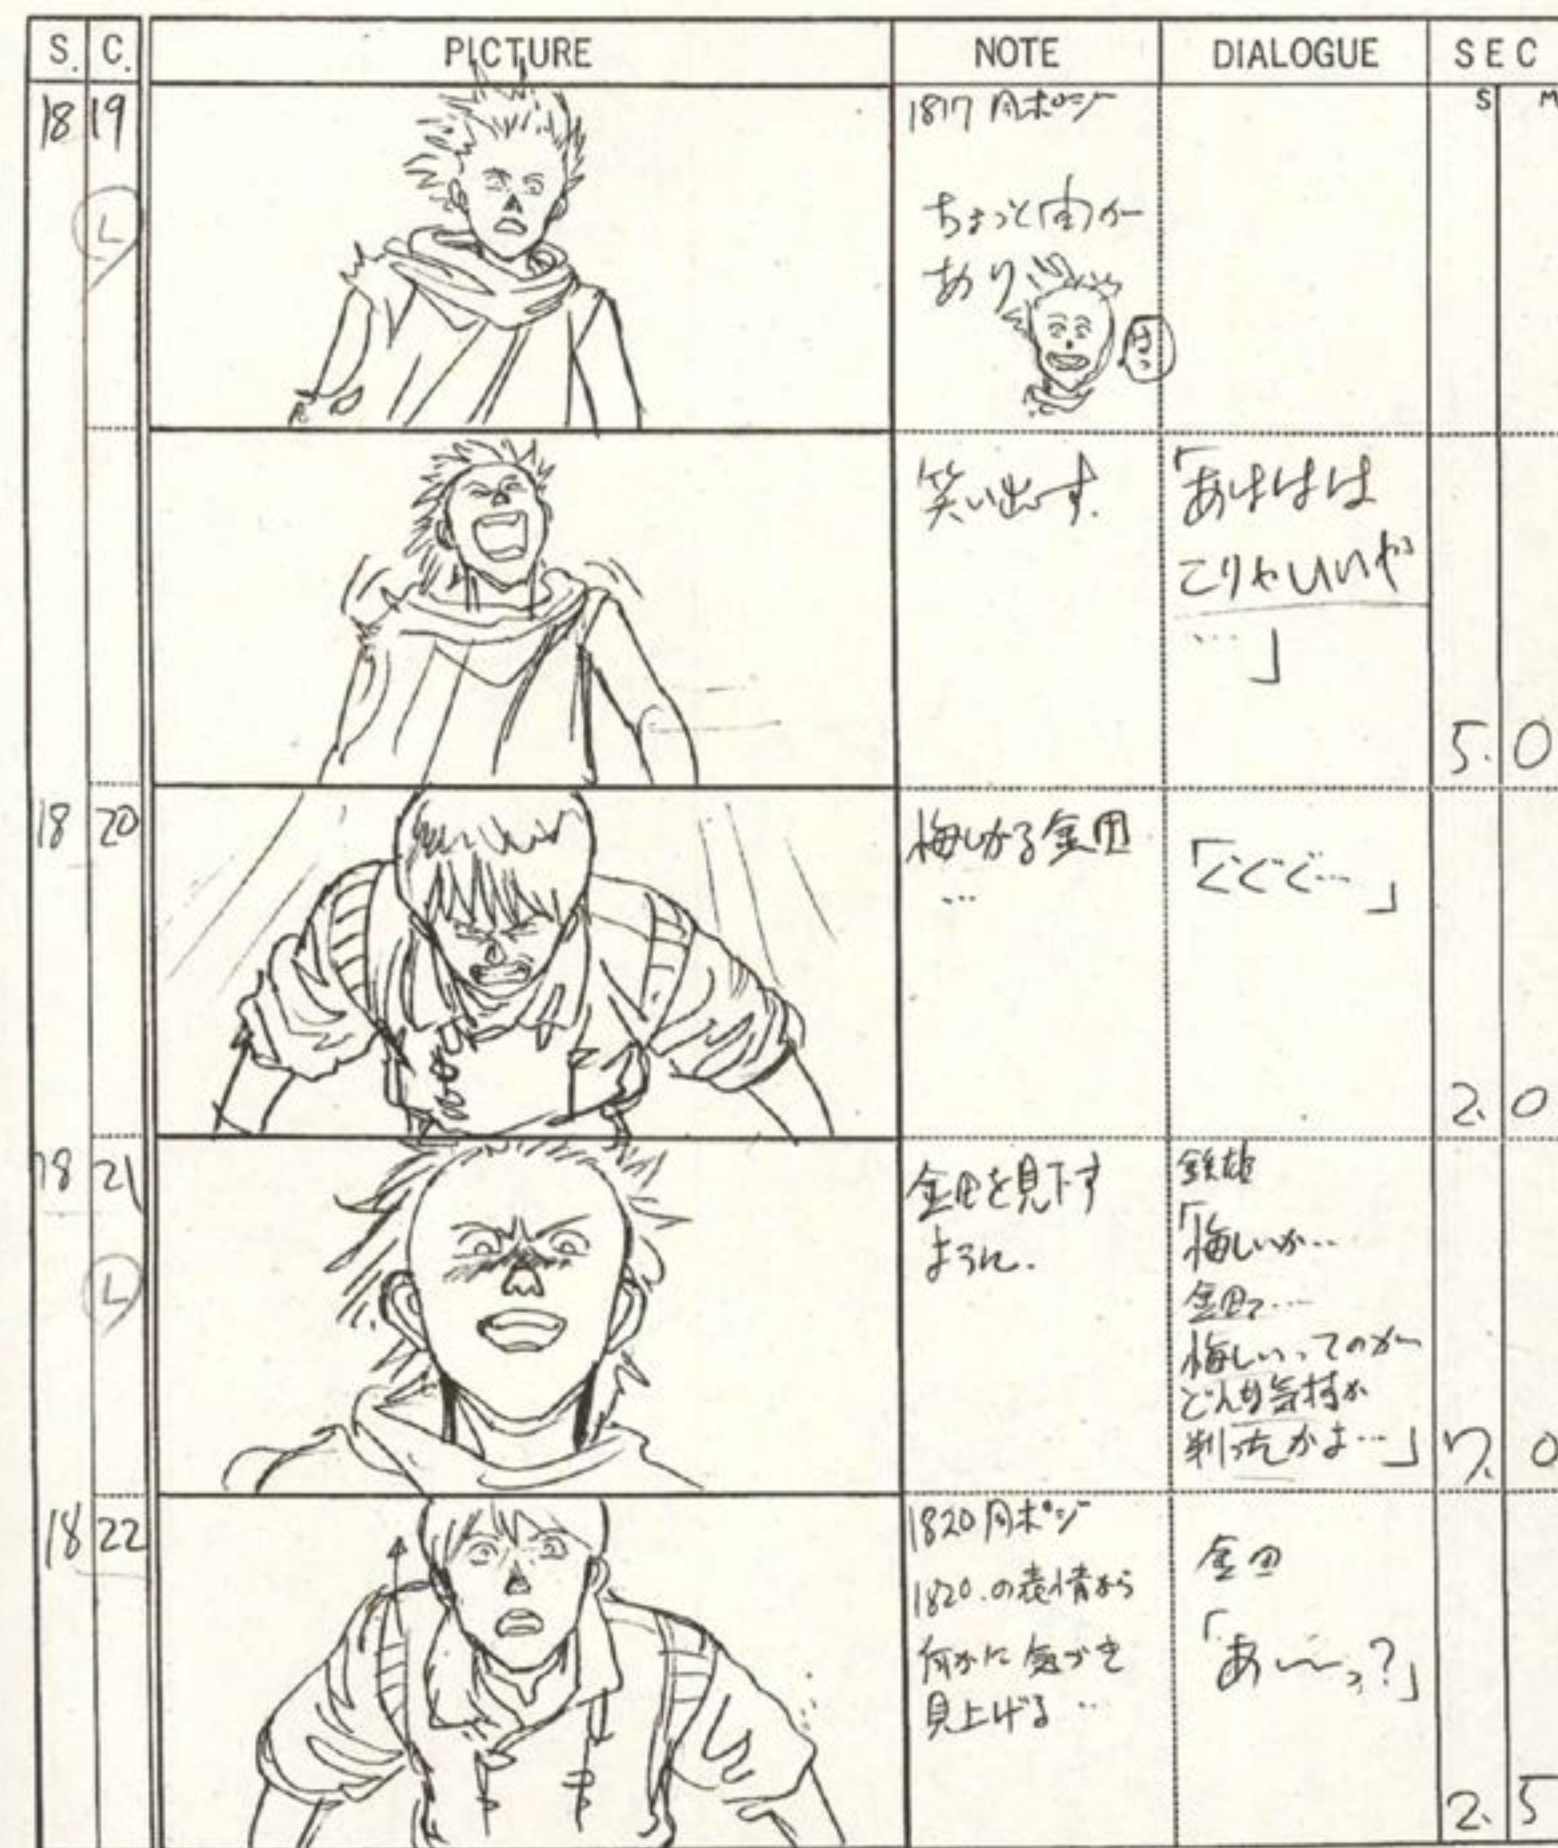 S. C. PICTURE NOTE DIALOGUE SEC
S M
18 19
L
1817 同ポジ
ちょっと間が
あり、
はっ
笑い出す.
「あははは
こりゃいいや
…」
5. 0
18 20
悔しがる金田
…
「ぐぐぐ…」
2. 0
18 21
L
金田を見下す
ように.
鉄雄
「悔しいか…
金田ァ…
悔しいってのが
どんな気持か
判ったかよ…」
7. 0
18 22
1820 同ポジ
1820.の表情から
何かに気づき
見上げる…
金田
「あ〜〜っ?」
2. 5